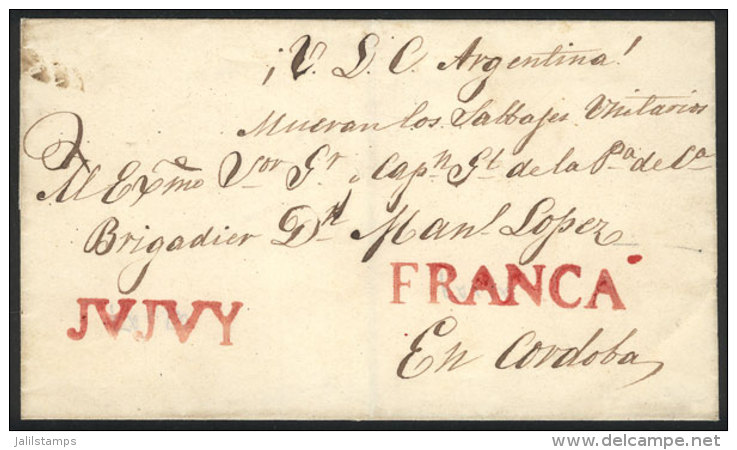 ¡V. L. C. Argentina!
Mueran los Salbajes Unitarios
Al Exmo Sor Gr y Capn Gl de la Pa de Ca
Brigadier Dn Manl Lopez
JVJVY FRANCA
En Cordoba
jalilstamps delcampe.net